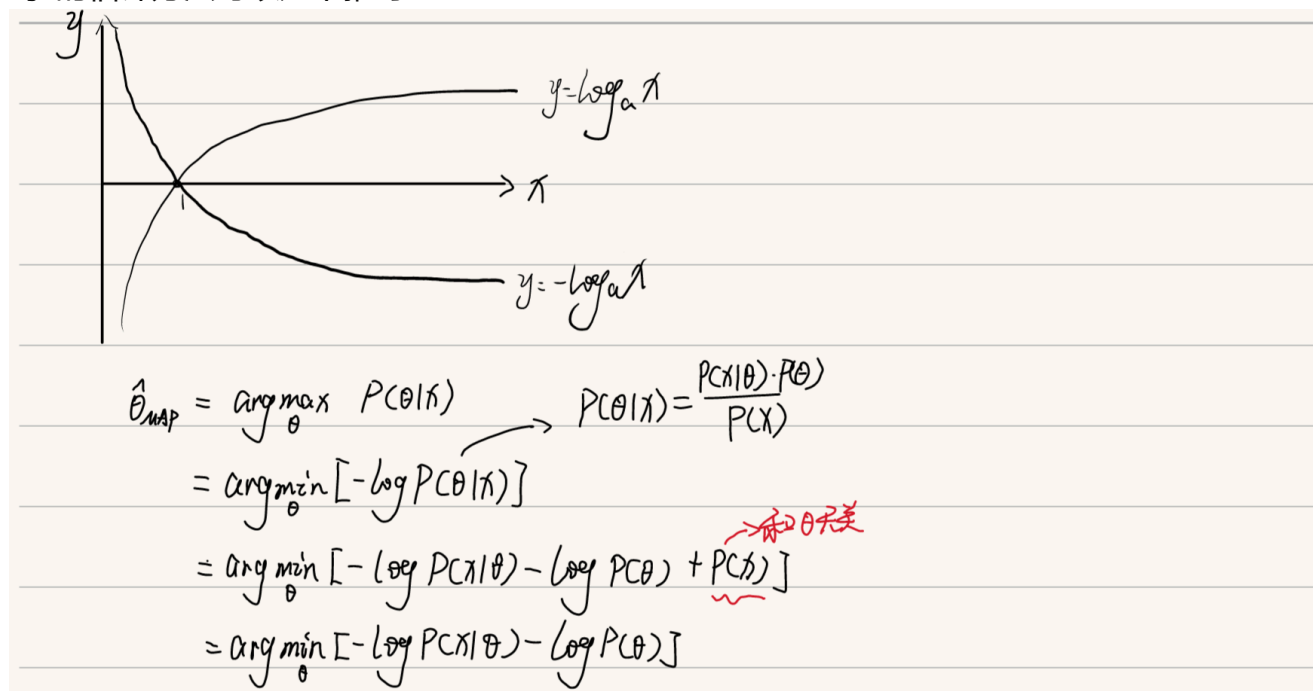 y
y=logₐx
x
1
y=-logₐx
θ̂_MAP = argmax_θ P(θ|x)
P(θ|x) = P(x|θ)·P(θ) / P(x)
= argmin_θ [-log P(θ|x)]
和θ无关
= argmin_θ [-log P(x|θ) - log P(θ) + P(x)]
= argmin_θ [-log P(x|θ) - log P(θ)]